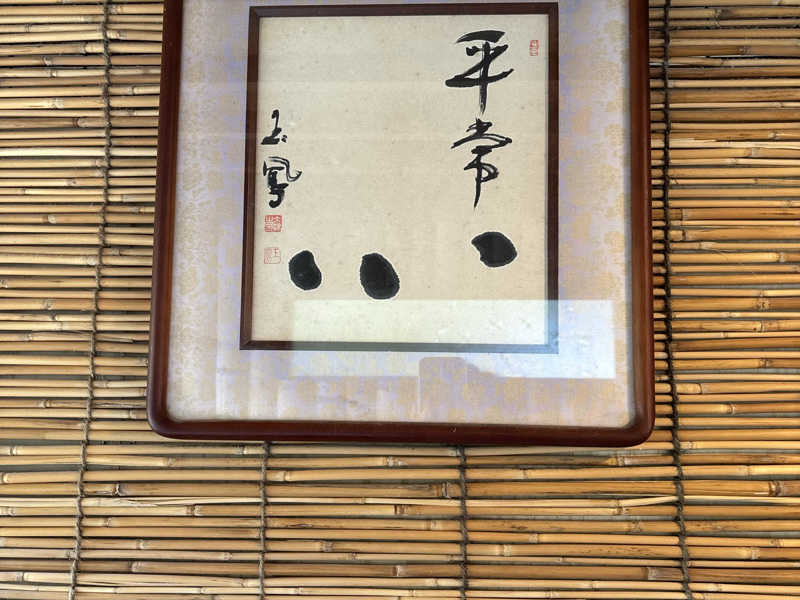 平常心
玉鳳